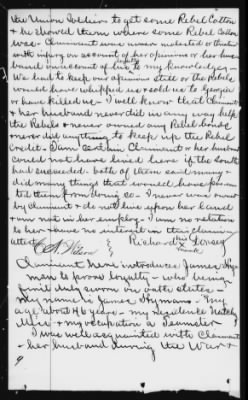 the Union Soldiers to get some Rebel Cotton
& he showed them where some Rebel Cotton
was. Claimant was never molested or threatened
with injury on account of her opinions or her hus
band on account of his to my knowledge.
We had to keep our opinions still or the Rebels
would have whipped us & sold us to Georgia
or have killed us. I well know that Claimant
& her husband never did in any way help
the Rebels & never owned any Rebel bonds
& never did anything to keep up the Rebel
Credit. I am certain Claimant or her husband
could not have lived here if the South
had succeeded. both of them said many &
did many things that would have preven
ted them from doing so. I never was owned
by Claimant & do not live upon her land
& am not in her employ. I am no relation
to her & have no interest in this claim
attest
Richard his x mark Dorsey
Claimant here introduces James Hy
mans to prove loyalty. who being
first duly sworn on oath states.
My name is James Hymans. My
age about 46 years. my residence Natchez
Miss & my occupation a Teamster
I was well acquainted with Claimant
& her husband during the War &
9